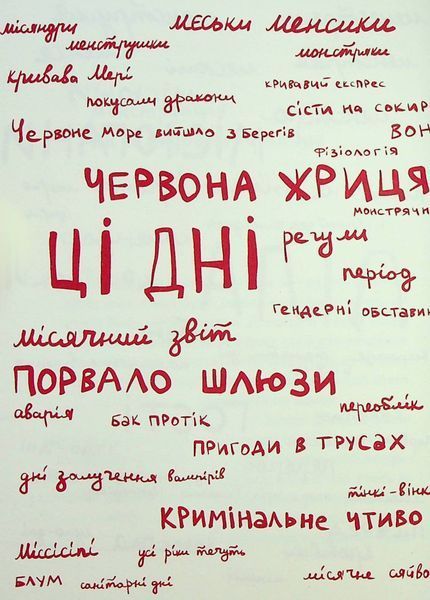 місяндри мєськи менсики
менструшки монстряки
кривава Мері кривавий експрес
покусали дракони сісти на сокир
Червоне море вийшло з берегів ВОН
фізіологія
ЧЕРВОНА ЖРИЦЯ
монстрячи
ЦІ ДНІ регули
період
гендерні обставин
місячний звіт
ПОРВАЛО ШЛЮЗИ
аварія бак протік переоблік
ПРИГОДИ В ТРУСАХ
дні залучення вампірів
тінкі-вінк
КРИМІНАЛЬНЕ ЧТИВО
Міссісіпі усі ріки течуть
БЛУМ санітарні дні місячне сяйво